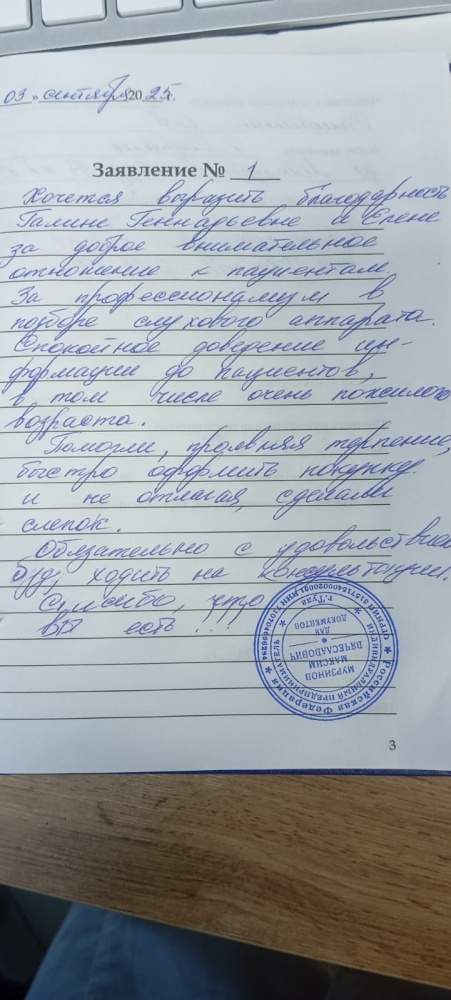 03 » сентября 2025 г.
Заявление № 1
Хочется выразить благодарность
Галине Геннадьевне и Елене
за доброе внимательное
отношение к пациентам.
За профессионализм в
подборе слухового аппарата.
Спокойное доведение ин-
формации до пациентов,
в том числе очень пожилого
возраста.
Помогли, проявляя терпение,
быстро оформить покупку
и не отлагая, сделали
слепок.
Обязательно с удовольствием
буду ходить на консультации.
Спасибо, что
вы есть!
Российская Федерация
ИНДИВИДУАЛЬНЫЙ ПРЕДПРИНИМАТЕЛЬ
г. Тула
МУРЗИНОВ
МАКСИМ
ВЯЧЕСЛАВОВИЧ
ДЛЯ
ДОКУМЕНТОВ
3